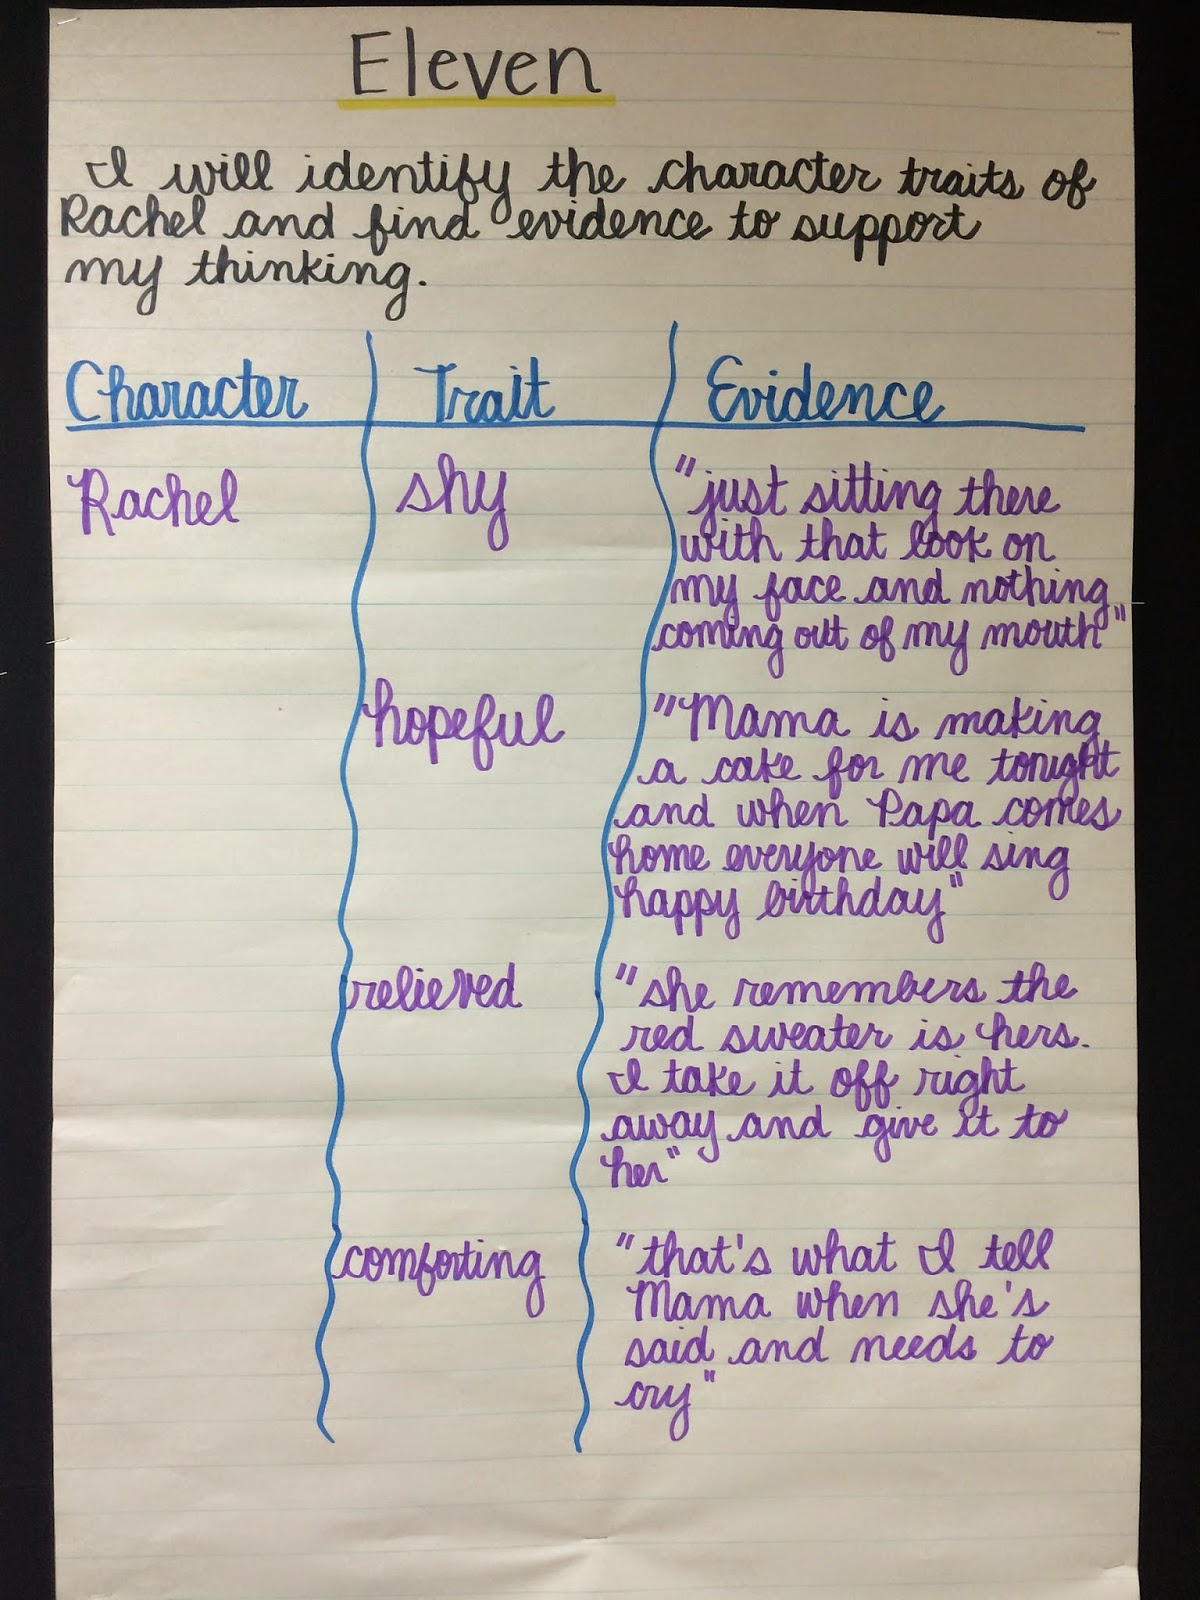 Eleven
I will identify the character traits of
Rachel and find evidence to support
my thinking.
Character Trait Evidence
Rachel shy "just sitting there
with that look on
my face and nothing
coming out of my mouth"
hopeful "Mama is making
a cake for me tonight
and when Papa comes
home everyone will sing
happy birthday"
relieved "she remembers the
red sweater is hers.
I take it off right
away and give it to
her"
comforting "that's what I tell
Mama when she's
said and needs to
cry"